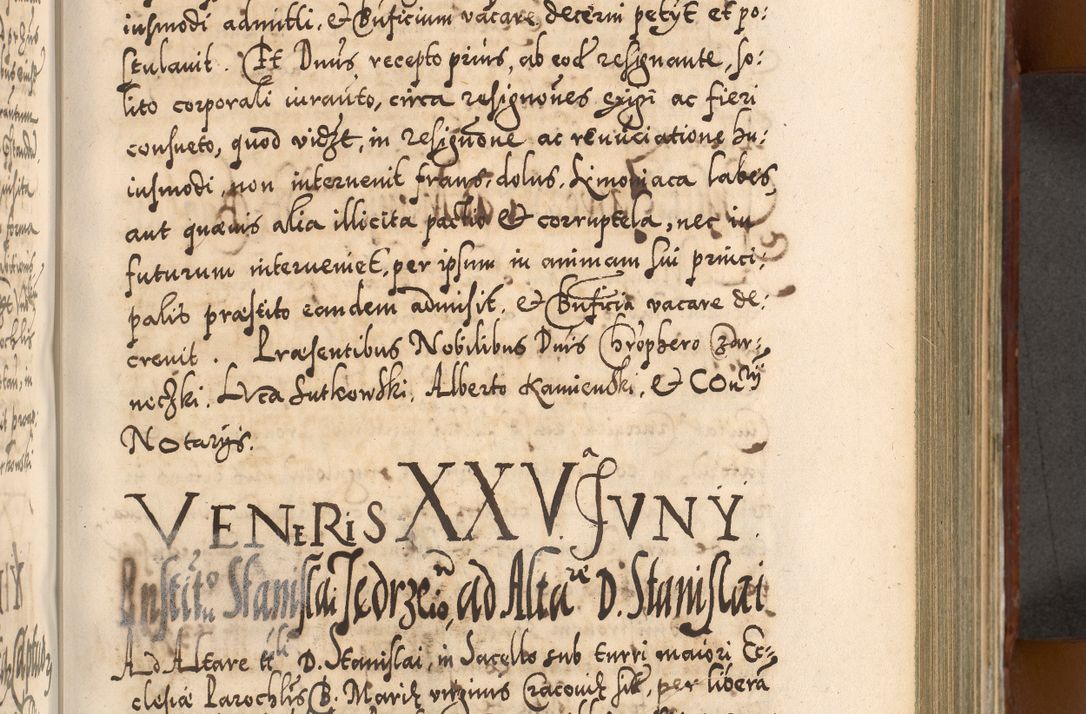 iusmodi admitti, & Bnficium vacare decerni petÿt et po:
stulavit. Et Dnus recepto prius, ab eod resignante, so:
lito corporali iuranto, circa resignones exigi ac fieri
consueto, quod vidzt, in resignone ac renuciatione hu:
iusmodi, non intervenit fraus, dolus, Simoniaca labes,
aut quævis alia illicita pactio & corruptela, nec in
futurum interveniet, per ipsum in animam sui princi:
palis præstito eandem admisit, & Bnficia vacare de:
crevit. Præsentibus Nobilibus Dnis Chrophero Czar:
neczki, Luca Lutkowski, Alberto Kamienski, &
Notarÿs.
VENERIS XXVa JUNŸ.
Institto Stanislai Jedrzeio, ad Altare D. Stanislai
Ad Altare tt D. Stanislai, in Sacello sub turri maiori Ec:
clesiæ Parochlis B. Mariæ virginis Cracoviæ sit, per liberã